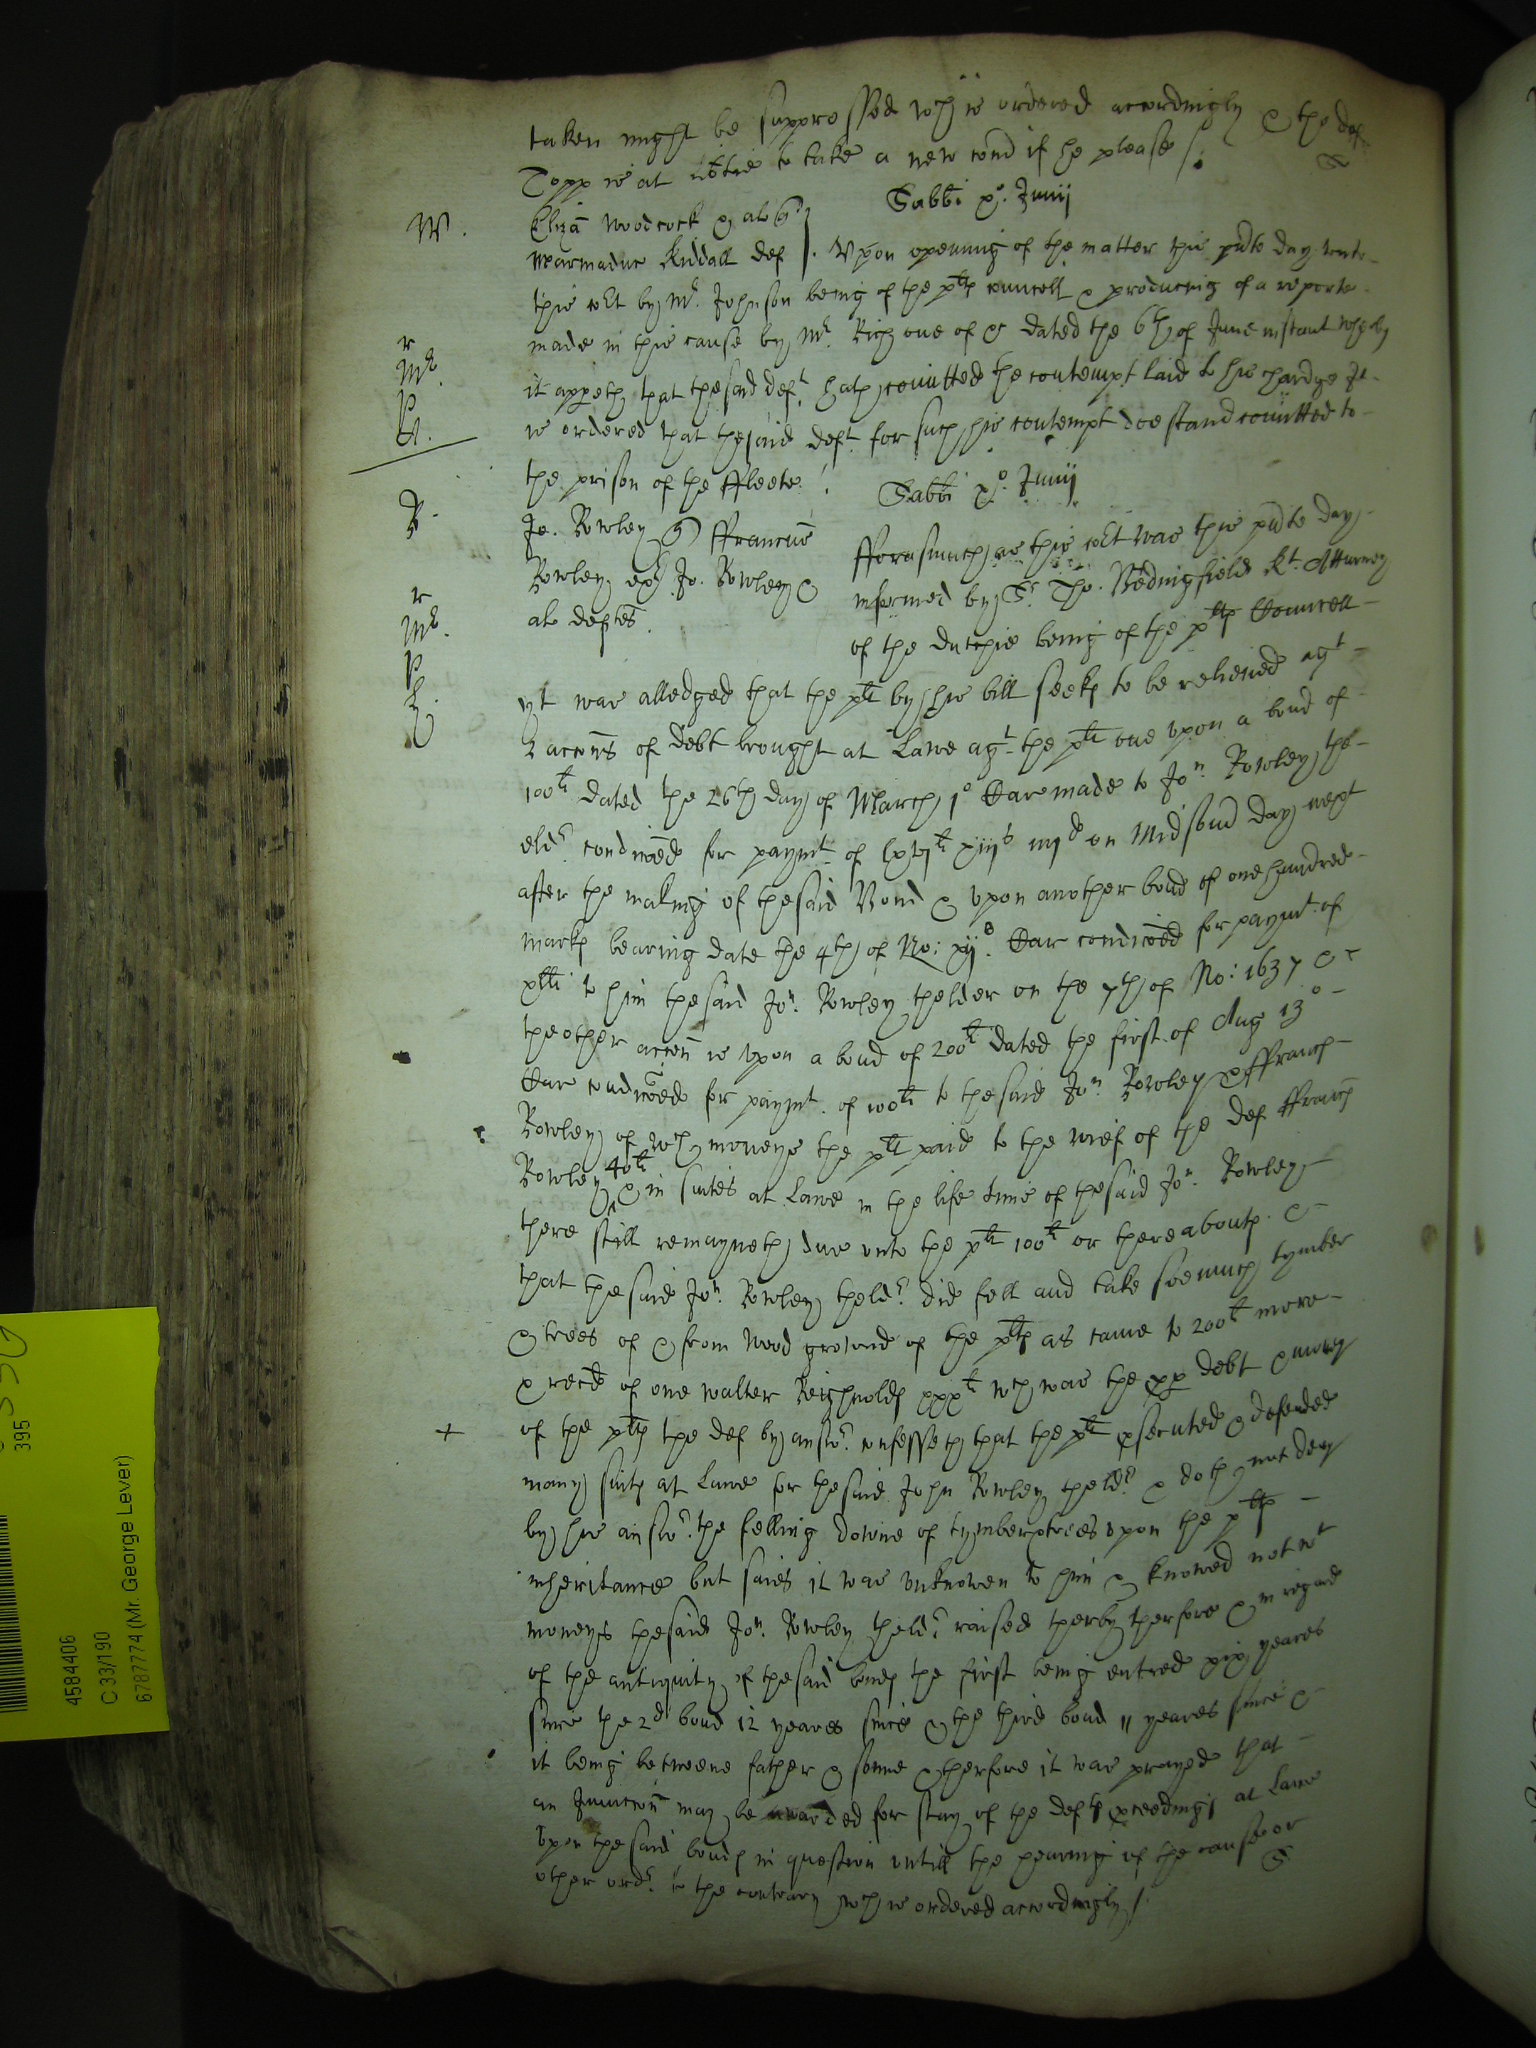 taken might be suppressed wch is ordered accordingly & the def
Topp is at libtie to take a new comd if he please /.
Sabbti xo. Junij
W.
Eliza Woodcock & al qr
Marmaduc Kiddall def
Upon openinig of the matter this pnte day unto
this cort by Mr. Johnson being of the pltes councell & producing of a reporte
made in this cause by Mr. Rich one of &c dated the 6th of June instant wherby
r
Mr.
P
it appeth that the said deft. hath comitted the contempt laid to his chardge It
is ordered that the said deft. for such his contempt doe stand comitted to
the prison of the ffleete /.
Sabbti xo. Junij
R.
Jo. Rowley qr ffrancus
Rowley exr Jo. Rowley &
als deftes.
fforasmuch as this cort was this pnte day
informed by Sr. Tho. Bedingfield Kt. Atturney
of the Dutchie being of the pltes Councell
r
Mr.
P
yt was alledged that the plt by his bill seekes to be releived agt
2 accons of debt brought at Lawe agt. the plt one upon a bond of
100li dated the 26th day of March 1o Car made to Jon. Rowley the
eldr. condiconed for paymt. of lxvjli xiijs iiijd on Midsomr day next
after the making of the said Bond & upon another bond of one hundred
markes bearing date the 4th of No: xijo. Car condiconed for paymt. of
xlli to him the said Jon. Rowley thelder on the 7th of No: 1637 &
the other accon is upon a bond of 200li dated the first of Aug 13o
Car condiconed for paymt. of 100li to the said Jon. Rowley & ffranc
Rowley of wch moneys the plt paid to the wief of the def ffranc
Rowley 40li & in suites at Lawe in the life time of the said Jon. Rowley
there still remayneth due unto the plt 100li or thereaboutes &
that the said Jon. Rowley theldr. did fell and take soe much tymber
& trees of & from wood ground of the pltes as came to 200li more
& recd of one Walter Reighnolds xxxli wch was the pp debt & money
+
of the pltes the def by answr. confesseth that the plt psecuted & defended
many suites at Lawe for the said John Rowley theldr. & doth not deny
by his answr. the felling downe of tymber trees upon the pltes
inheritance but saies it was unknowen to him & knowed not wt
moneys the said Jon. Rowley theldr. raised therby therfore & in regard
of the antiquity of the said bondes the first being entred xix yeares
since the 2d bond 12 yeares since & the third bond 11 yeares since &
it being betweene father & sonne & therfore it was prayed that
an Iniuncon may be awarded for stay of the deftes pceedings at Lawe
upon the said bondes in question untill the hearing of the cause or
other ordr. to the contrary wch is ordered accordingly /.
395
4584406
C 33/190
6787774 (Mr. George Lever)